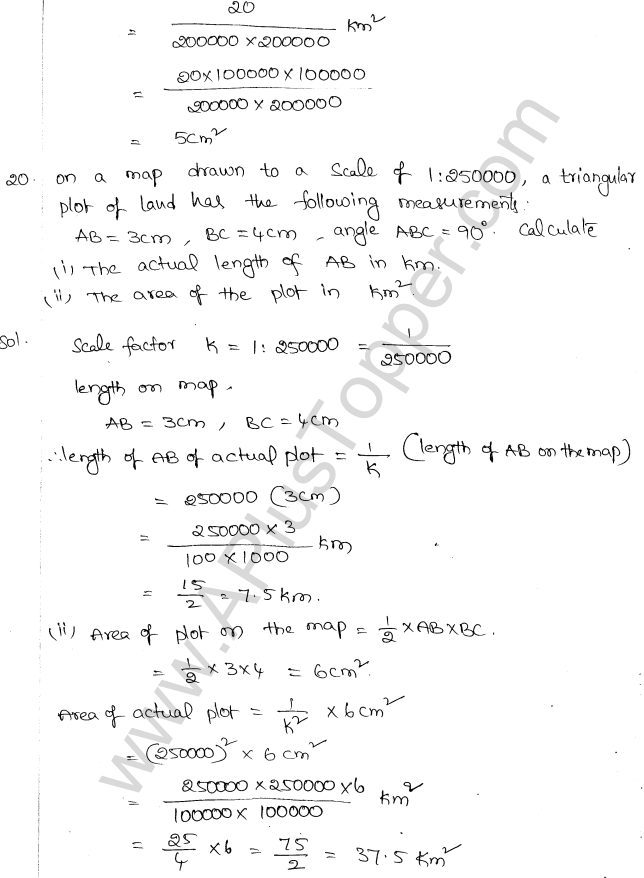 = 20 / 200000 × 200000 Km²
= 20×100000 × 100000 / 200000 × 200000
= 5cm²
20. on a map drawn to a scale of 1:250000, a triangular
plot of land has the following measurements:
AB = 3cm, BC = 4cm, angle ABC = 90°. Calculate
(i) The actual length of AB in km.
(ii) The area of the plot in Km².
Sol. Scale factor K = 1: 250000 = 1/250000
length on map.
AB = 3cm, BC = 4cm
∴ length of AB of actual plot = 1/K (length of AB on the map)
= 250000 (3cm)
= 250000 × 3 / 100 × 1000 Km
= 15/2 = 7.5 Km.
(ii) Area of plot on the map = 1/2 × AB × BC.
= 1/2 × 3 × 4 = 6cm².
Area of actual plot = 1/K² × 6 cm²
= (250000)² × 6 cm²
= 250000 × 250000 × 6 / 100000 × 100000 Km²
= 25/4 × 6 = 75/2 = 37.5 Km²
www.APlusTopper.com